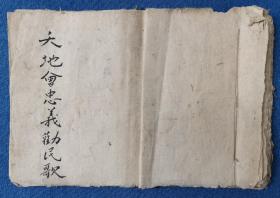 天地會忠義勸民歌